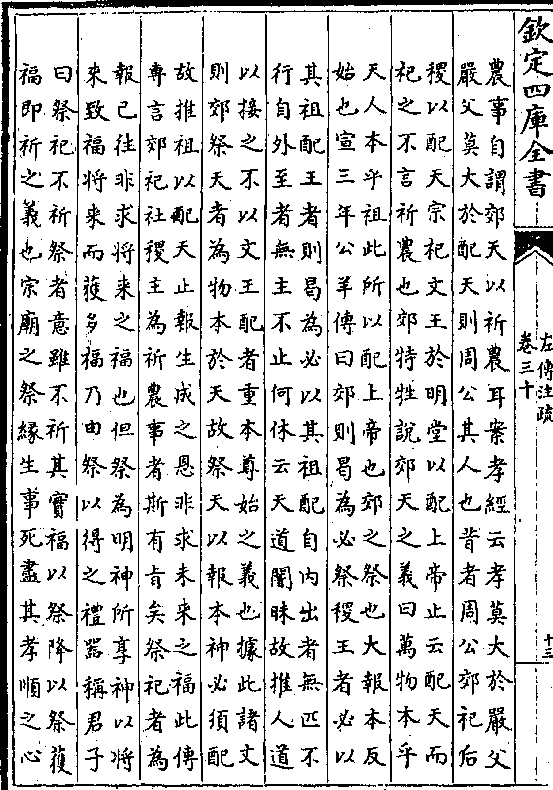 欽定四庫全書
左傳注疏
卷三十
十三
農事自謂郊天以祈農耳案孝經云孝莫大於嚴父
嚴父莫大於配天則周公其人也昔者周公郊祀后
稷以配天宗祀文王於明堂以配上帝止云配天而
祀之不言祈農也郊特牲說郊天之義曰萬物本乎
天人本乎祖此所以配上帝也郊之祭也大報本反
始也宣三年公羊傳曰郊則曷為必祭稷王者必以
其祖配王者則曷為必以其祖配自內出者無匹不
行自外至者無主不止何休云天道闇昧故推人道
以接之不以文王配者重本尊始之義也據此諸文
則郊祭天者為物本於天故祭天以報本神必須配
故推祖以配天止報生成之恩非求未來之福此傳
専言郊祀社稷主為祈農事者斯有旨矣祭祀者為
報已往非求將来之福也但祭為明神所享神以將
来致福將来而獲多福乃由祭以得之禮器稱君子
曰祭祀不祈祭者意雖不祈其實福以祭降以祭獲
福即祈之義也宗廟之祭緣生事死盡其孝順之心